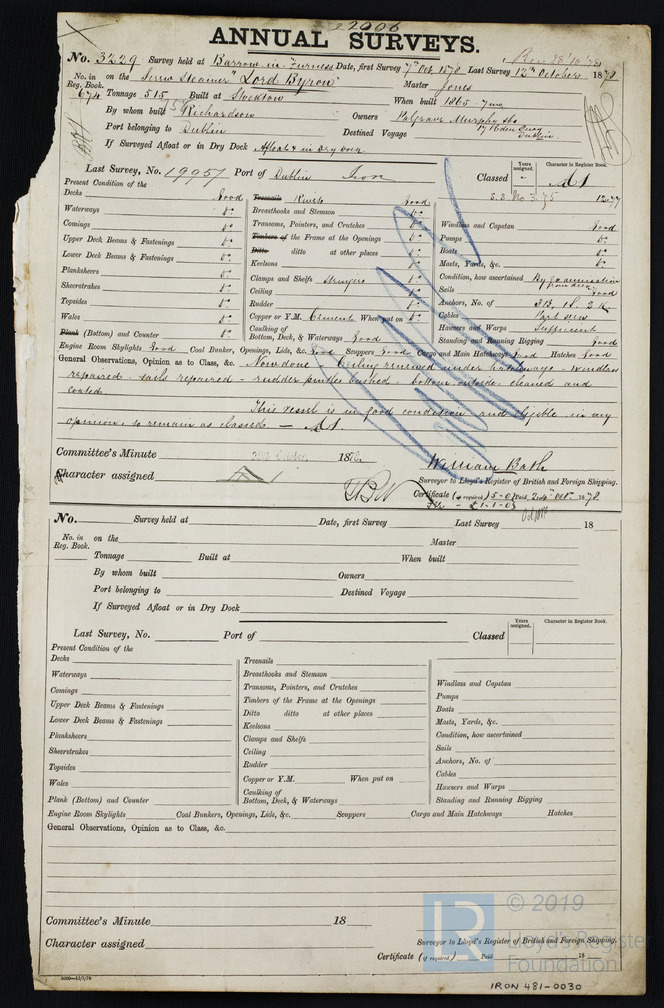 22006
ANNUAL SURVEYS.
No. 3229 Survey held at Barrow in Furness Date, first Survey 7th Oct. 1878 Last Survey 12th October 1878
No. in Reg. Book. 674 on the Screw Steamer "Lord Byron" Master Jones
Tonnage 515 Built at Stockton When built 1865
By whom built Richardson Owners Palgrave Murphy & Co
Port belonging to Dublin Destined Voyage Dublin
If Surveyed Afloat or in Dry Dock Afloat & in Dry Dock
Last Survey, No. 19957 Port of Dublin Iron Classed A1
Years assigned. Character in Register Book.
S.S. No 3. 75 12.77
Present Condition of the
Decks Good
Waterways Do
Comings Do
Upper Deck Beams & Fastenings Do
Lower Deck Beams & Fastenings Do
Planksheers Do
Sheerstrakes Do
Topsides Do
Wales Do
Plank (Bottom) and Counter Do
Treenails Rivets Good
Breasthooks and Stemson Do
Transoms, Pointers, and Crutches Do
Timbers of the Frame at the Openings Do
Ditto ditto at other places Do
Keelsons Do
Clamps and Shelfs Stringers Do
Ceiling Do
Rudder Do
Copper or Y.M. Cement When put on Do
Caulking of Bottom, Deck, & Waterways Good
Windlass and Capstan Good
Pumps Do
Boats Do
Masts, Yards, &c. Do
Condition, how ascertained By examination from deck
Sails Good
Anchors, No. of 3B, 1S, 2K
Cables Part new
Hawsers and Warps Sufficient
Standing and Running Rigging Good
Engine Room Skylights Good Coal Bunkers, Openings, Lids, &c. Good Scuppers Good Cargo and Main Hatchways Good Hatches Good
General Observations, Opinion as to Class, &c. Now done Ceiling renewed under hatchways - windlass
repaired - sails repaired - rudder pintles bushed - bottom outside cleaned and
coated.
This vessel is in good condition and eligible in my
opinion, to remain as classed - A1
Committee's Minute October 1878
Character assigned A1
William Bath
Surveyor to Lloyd's Register of British and Foreign Shipping.
Certificate (if required) Oct. 1878
No. Survey held at Date, First Survey Last Survey 18
No. in Reg. Book. on the Master
Tonnage Built at When built
By whom built Owners
Port belonging to Destined Voyage
If Surveyed Afloat or in Dry Dock
Last Survey, No. Port of Classed
Years assigned. Character in Register Book.
Present Condition of the
Decks
Waterways
Comings
Upper Deck Beams & Fastenings
Lower Deck Beams & Fastenings
Planksheers
Sheerstrakes
Topsides
Wales
Plank (Bottom) and Counter
Treenails
Breasthooks and Stemson
Transoms, Pointers, and Crutches
Timbers of the Frame at the Openings
Ditto ditto at other places
Keelsons
Clamps and Shelfs
Ceiling
Rudder
Copper or Y.M. When put on
Caulking of Bottom, Deck, & Waterways
Windlass and Capstan
Pumps
Boats
Masts, Yards, &c.
Condition, how ascertained
Sails
Anchors, No. of
Cables
Hawsers and Warps
Standing and Running Rigging
Engine Room Skylights Coal Bunkers, Openings, Lids, &c. Scuppers Cargo and Main Hatchways Hatches
General Observations, Opinion as to Class, &c.
Committee's Minute 18
Character assigned
Surveyor to Lloyd's Register of British and Foreign Shipping.
Certificate (if required) Paid 18
LR © 2019
Lloyd's Register
Foundation
IRON 481-0030